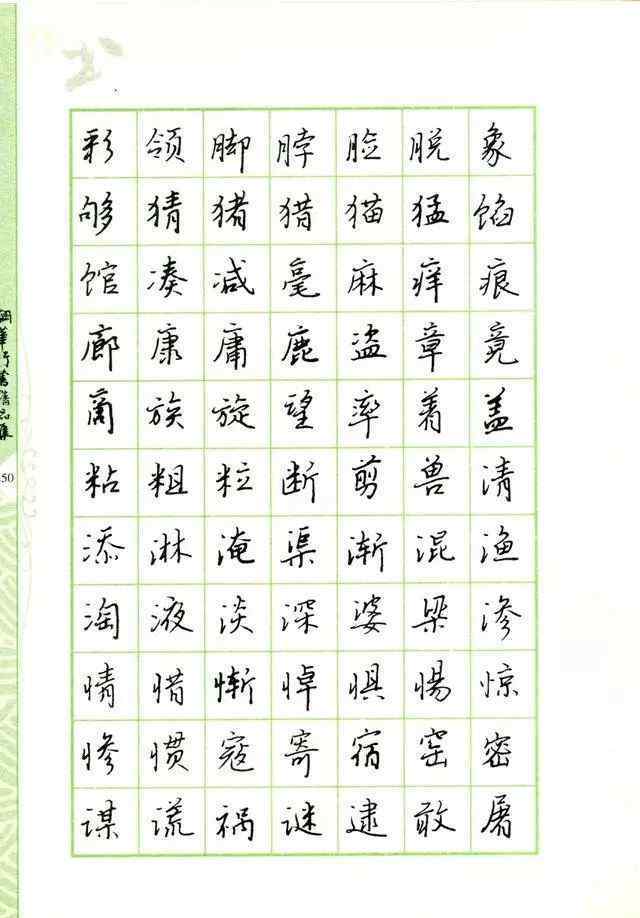 彩领脚脖脸脱象
够猜猪猎猫猛馅
馆凑减毫麻痒痕
廊康庸鹿盗章竟
商族旋望率着盖
粘粗粒断剪兽清
添淋淹渠渐混渔
淘液淡深婆梁渗
情惜惭悼惧惕惊
惨惯寇寄宿窑密
谋谎祸谜逮敢屠
50